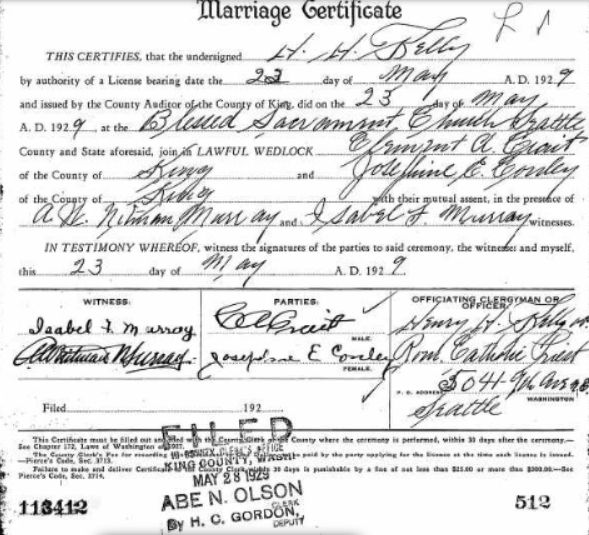 Marriage Certificate
THIS CERTIFIES, that the undersigned H. H. Kelly
by authority of a License bearing date the 23 day of May A. D. 1929
and issued by the County Auditor of the County of King, did on the 23 day of May
A. D. 1929, at the Blessed Sacrament Church Seattle
County and State aforesaid, join in LAWFUL WEDLOCK Clement A.
of the County of King and Josephine E. Conley
of the County of King with their mutual assent, in the presence of
A. W. Murray and Isabel F. Murray witnesses.
IN TESTIMONY WHEREOF, witness the signatures of the parties to said ceremony, the witnesses and myself,
this 23 day of May A. D. 1929.
WITNESS: PARTIES: OFFICIATING CLERGYMAN OR OFFICER:
Isabel F. Murray
MALE.
Henry H. Kelly
A Whitman Murray Josephine E Conley
FEMALE.
Rom. Catholic Priest
P. O. ADDRESS 5041 9th Ave N E
WASHINGTON
Seattle
Filed 192
This Certificate must be filled out and filed with the County Clerk of the County where the ceremony is performed, within 30 days after the ceremony.—
See Chapter 172, Laws of Washington
The County Clerk's Fee for recording paid by the party applying for the license at the time such license is issued.
—Pierce's Code, Sec. 3713.
Failure to make and deliver Certificate to County Clerk within 30 days is punishable by a fine of not less than $25.00 or more than $300.00.—See
Pierce's Code, Sec. 3714.
FILED
IN COUNTY CLERK'S OFFICE
KING COUNTY, WASH.
MAY 28 1929
ABE N. OLSON
CLERK
By H. C. GORDON,
DEPUTY
113412
512